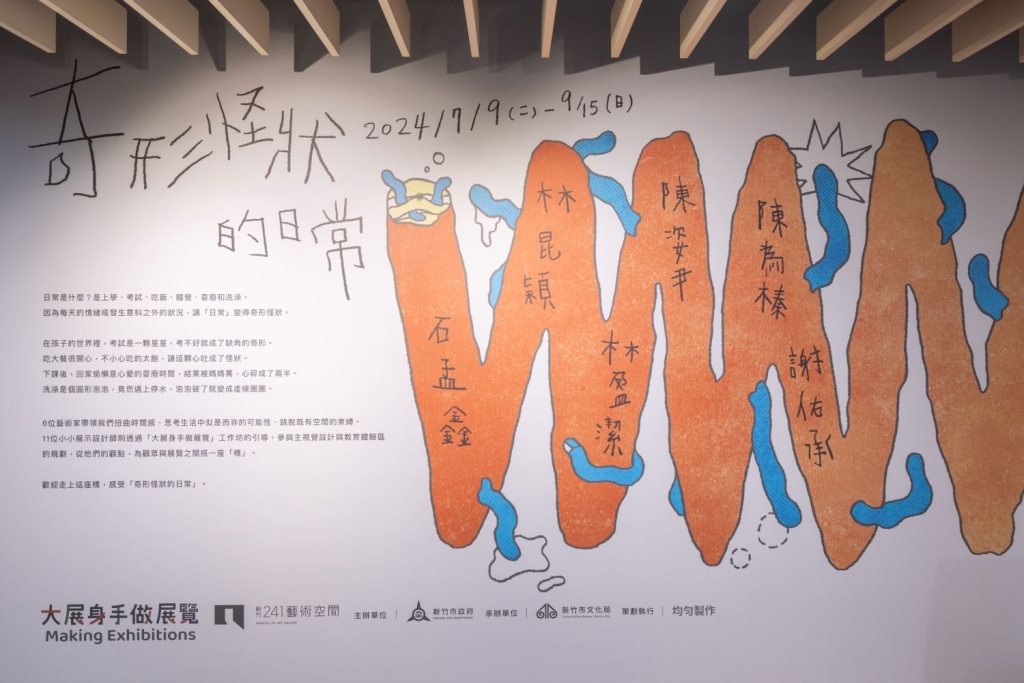 奇形怪狀
2024/7/9(二)-9/15(日)
的日常
日常是什麼?是上學、考試、吃飯、睡覺、耍廢和洗澡。
因為每天的情緒或發生意料之外的狀況,讓「日常」變得奇形怪狀。
在孩子的世界裡,考試是一顆星星,考不好就成了缺角的奇形。
吃大餐很開心,不小心吃的太飽,讓這顆心吐成了怪狀。
下課後,回家偷懶是心愛的耍廢時間,結果被媽媽罵,心碎成了兩半。
洗澡是個圓形泡泡,竟然遇上停水,泡泡破了就變成虛線圈圈。
6位藝術家帶領我們扭曲時間感、思考生活中似是而非的可能性、跳脫既有空間的束縛。
11位小小展示設計師則透過「大展身手做展覽」工作坊的引導,參與主視覺設計與教育體驗區
的規劃,從他們的觀點,為觀眾與展覽之間搭一座「橋」。
歡迎走上這座橋,感受「奇形怪狀的日常」。
石孟鑫
林昆穎
林盈潔
陳姿尹
陳為榛
謝佑承
大展身手做展覽
Making Exhibitions
新竹241藝術空間
主辦單位
新竹市政府
承辦單位
新竹市文化局
策劃執行
均勻製作